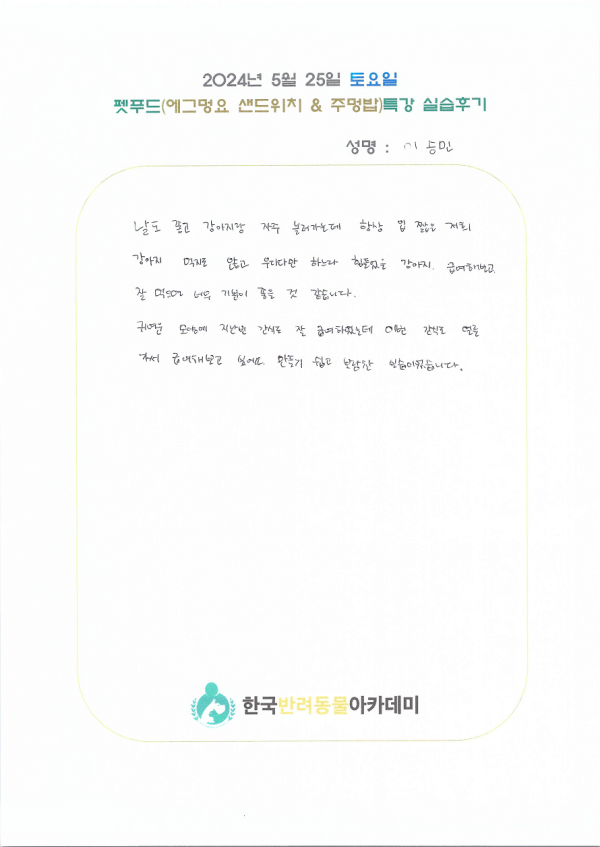 2024년 5월 25일 토요일
펫푸드(에그멍요 샌드위치 & 주멍밥)특강 실습후기
성명 : 이승민
날도 좋고 강아지랑 자주 놀러가는데 항상 입 짧은 저희
강아지 먹지도 않고 우다다만 하느라 힘들었을 강아지. 급여해보고
잘 먹으면 너무 기분이 좋을 것 같습니다.
귀여운 모양에 지난번 간식도 잘 급여하였는데 이번 간식도 얼른
가서 급여해보고 싶어요. 만들기 쉽고 보람찬 실습이었습니다.
한국반려동물아카데미